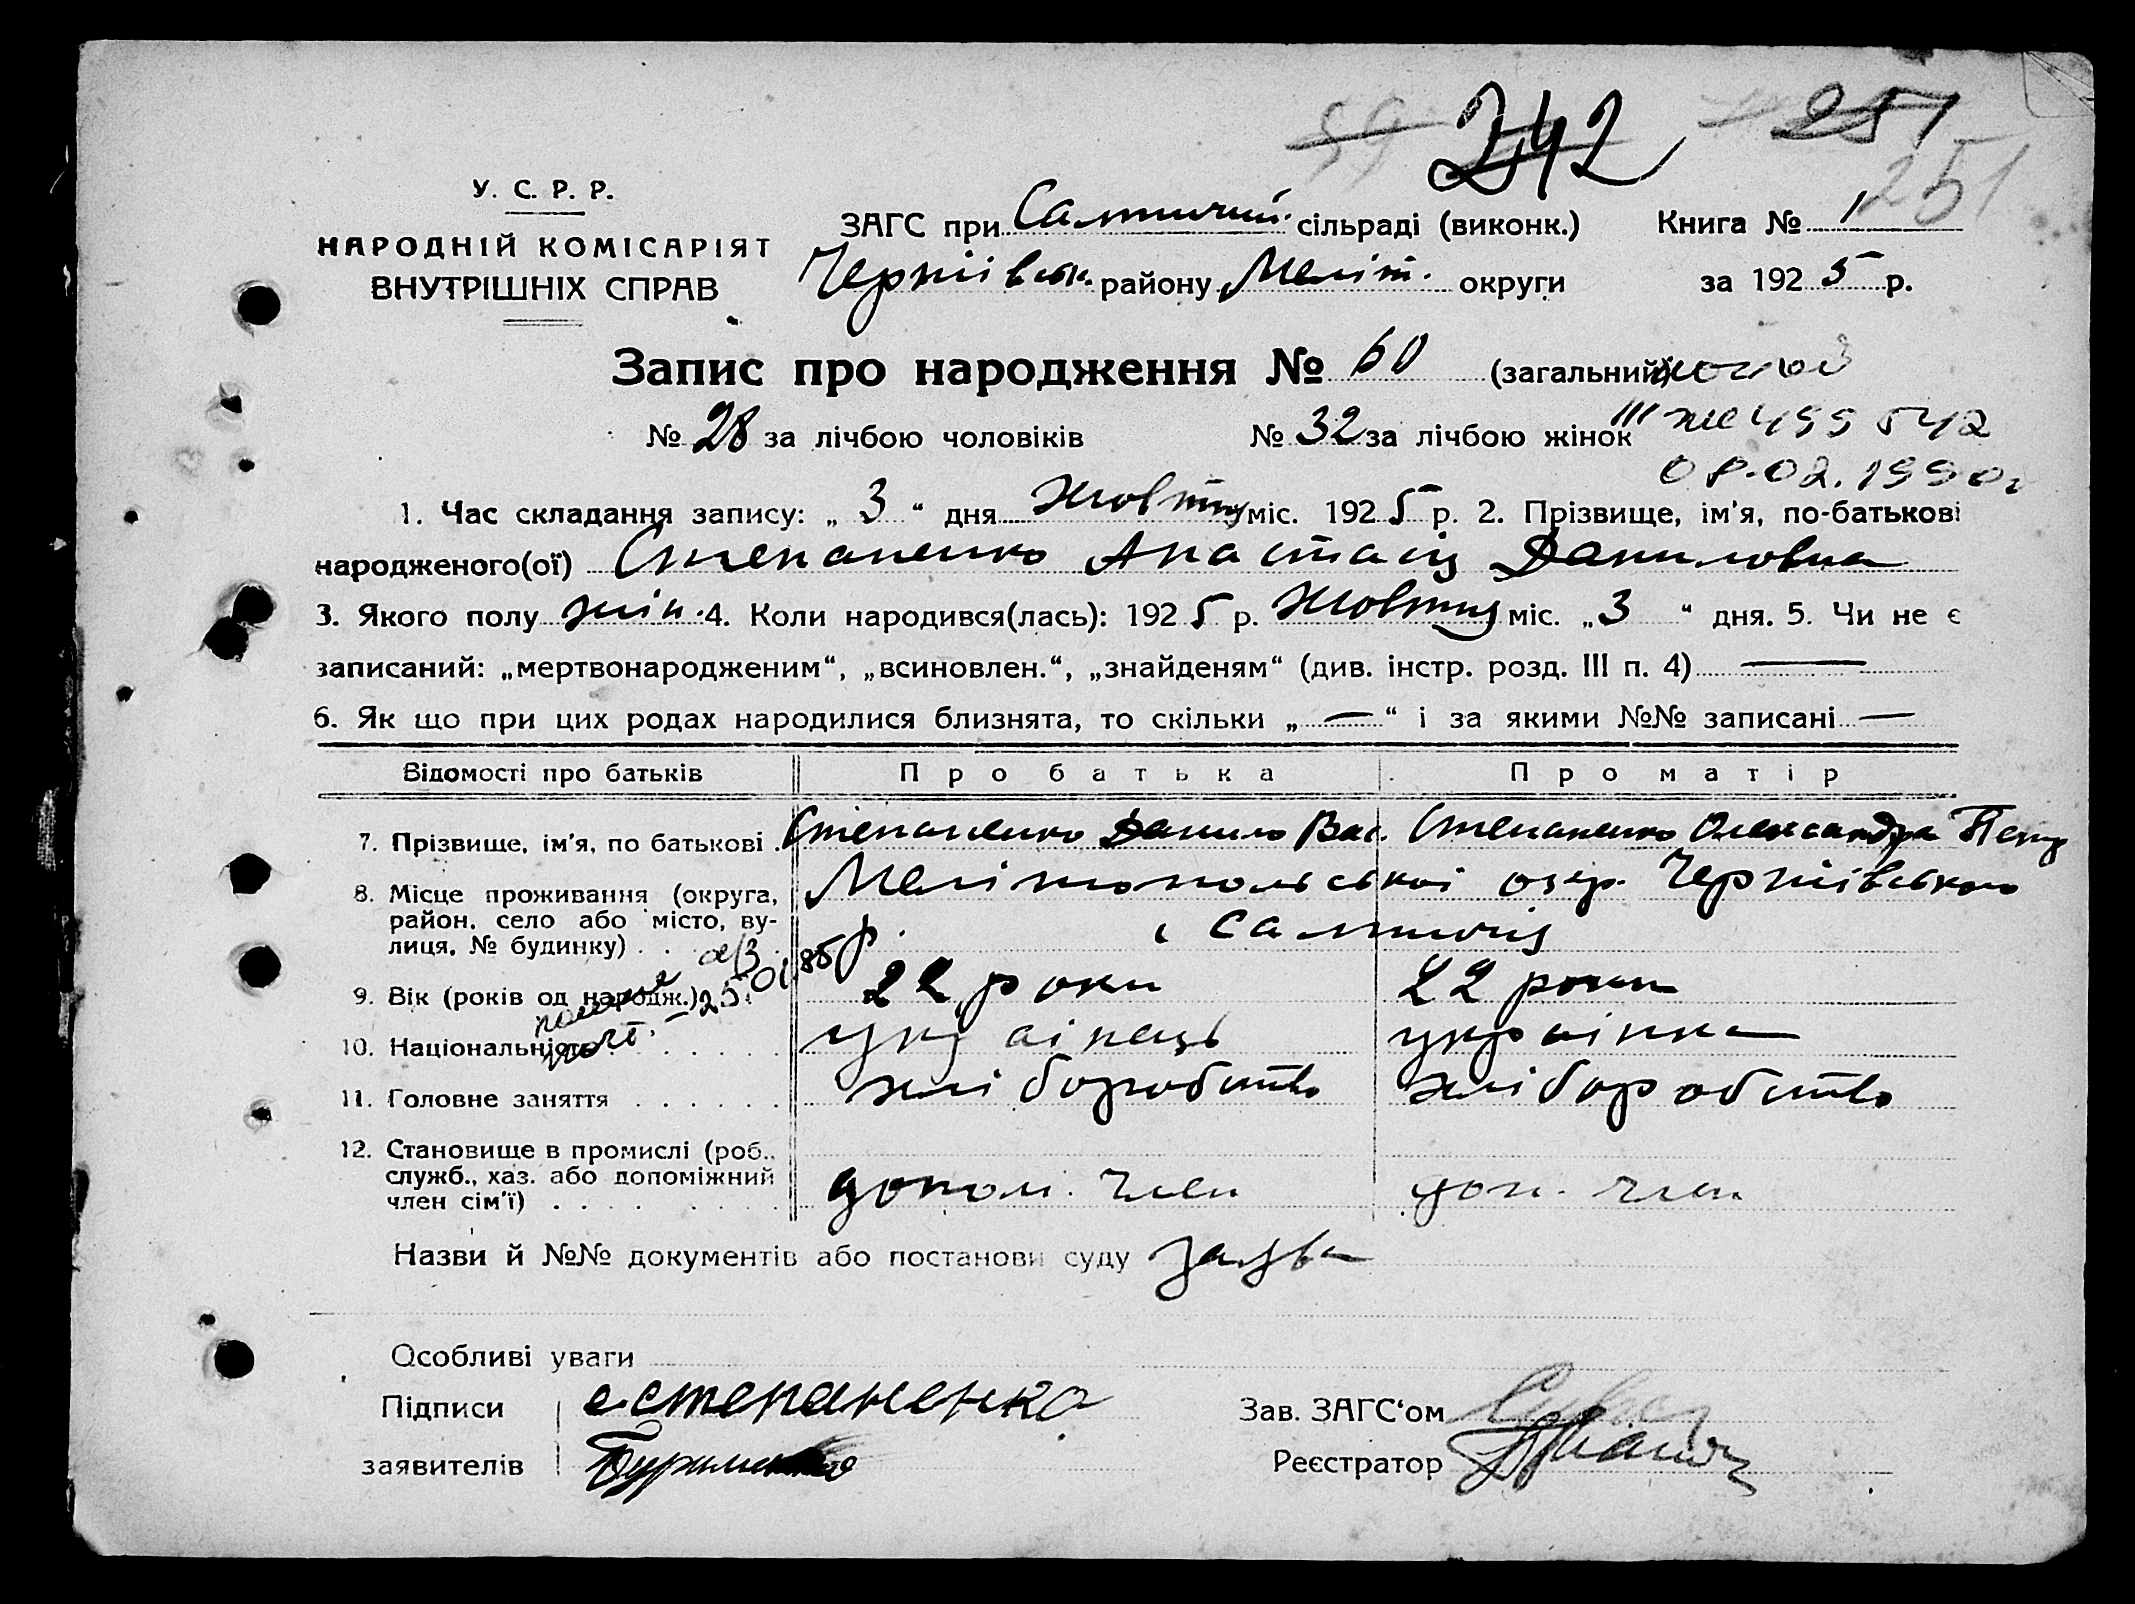 59 242 251
251
У. С. Р. Р.
НАРОДНІЙ КОМІСАРІЯТ
ВНУТРІШНІХ СПРАВ
ЗАГС при Салтичий. сільраді (виконк.) Книга № 1
Чернігівськ. району Меліт. округи за 1925 р.
Запис про народження № 60 (загальний)
№ 28 за лічбою чоловіків № 32 за лічбою жінок
III ЖС 499 542
08.02.1990г
1. Час складання запису: „ 3 “ дня Жовтня міс. 1925 р. 2. Прізвище, ім'я, по-батькові
народженого(ої) Степаненко Анастасія Даниловна
3. Якого полу жін. 4. Коли народився(лась): 1925 р. Жовтня міс. „3 “ дня. 5. Чи не є
записаний: „мертвонародженим“, „всиновлен.“, „знайденям“ (див. інстр. розд. III п. 4) —
6. Як що при цих родах народилися близнята, то скільки „ — “ і за якими №№ записані —
Відомості про батьків Про батька Про матір
7. Прізвище, ім'я, по батькові . Степаненко Данило Вас. Степаненко Олександра Петр
8. Місце проживання (округа, район, село або місто, вулиця, № будинку) . . . Мелітопольської окр. Чернігівського
р. с Салтичія
9. Вік (років од народж.) 22 роки 22 роки
10. Національність . . . . . українець українка
11. Головне заняття . . . . . . хліборобство хліборобство
12. Становище в промислі (роб., служб., хаз. або допоміжний член сім'ї) . . . . допом. член доп. член
Назви й №№ документів або постанови суду заява
Особливі уваги
Підписи Степаненко Зав. ЗАГС‘ом
заявителів Реєстратор